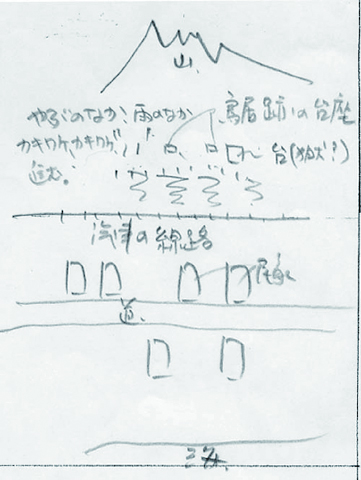 山
やぶのなか、雨のなか
カキワケ、カキワケ、
進む。
鳥居跡の台座
台(狛犬?)
汽車の線路
民家
道
海